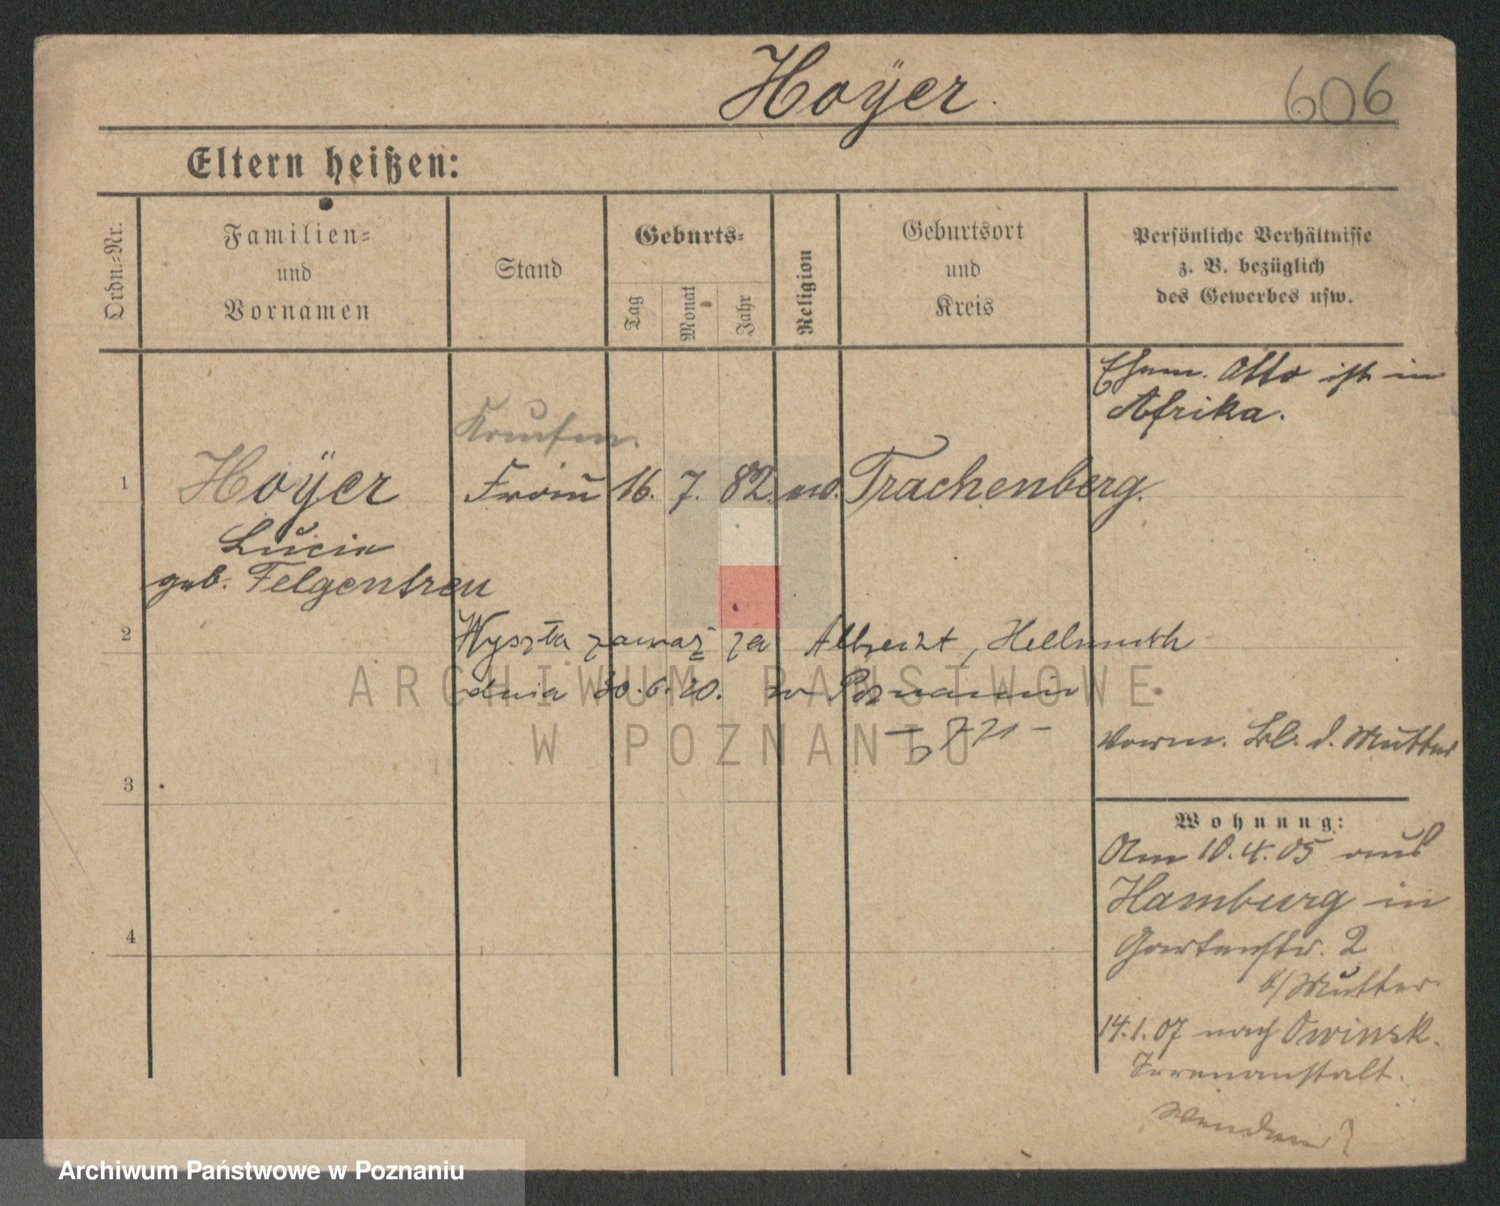 Hoÿer.
606
Eltern heißen:
Ordn.=Nr.
Familien=
und
Vornamen
Stand
Geburts=
Tag
Monat
Jahr
Religion
Geburtsort
und
Kreis
Persönliche Verhältnisse
z. B. bezüglich
des Gewerbes usw.
Ehem. Otto ist in
Afrika.
1
Hoÿer
Frau
16. 7. 82. ev. Trachenberg.
Lucie
geb. Felgentreu
2
Wyszła zamąż za Albrecht, Hellmuth
dnia 30.6.20. w Poznaniu
Vorm. Bl. d. Mutter
3
Wohnung:
Am 10.4.05 aus
Hamburg in
Gartenstr. 2
b/Mutter
4
14.1.07 nach Owinsk.
Irrenanstalt.
Wenden!
ARCHIWUM PAŃSTWOWE
W POZNANIU
Archiwum Państwowe w Poznaniu